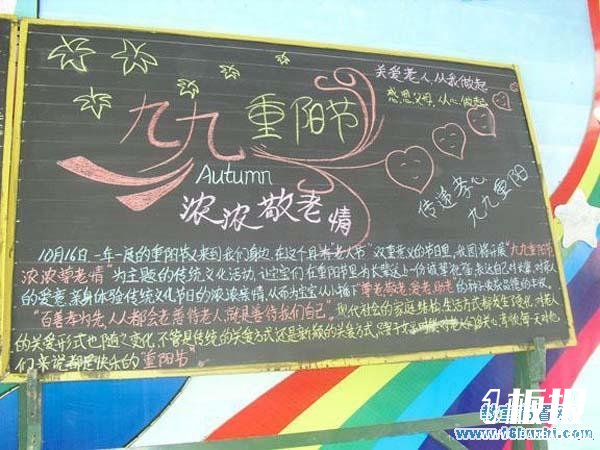 关爱老人,从我做起
感恩父母,从心做起
九九重阳节
Autumn
浓浓敬老情
传递孝心
九九重阳
10月16日,一年一度的重阳节又来到我们身边,在这个具有老人节"双重意义的节日里,我园将开展"九九重阳节
浓浓尊老情"为主题的传统文化活动,让宝宝们在重阳节里为长辈送上一份诚挚祝福,表达自己对长辈,对家人
的爱意,亲身体验传统文化节日的浓浓亲情,从而为宝宝从小播下"尊老、敬老、爱老、助老"的种子
"百善孝为先,人人都会老,善待老人,就是善待我们自己"。现代社会的家庭结构,生活方式都发生变化,对老人
的关爱形式也随之变化,不管是传统的关爱方式,还是新颖的关爱方式,
们来说都是快乐的"重阳节"
板报